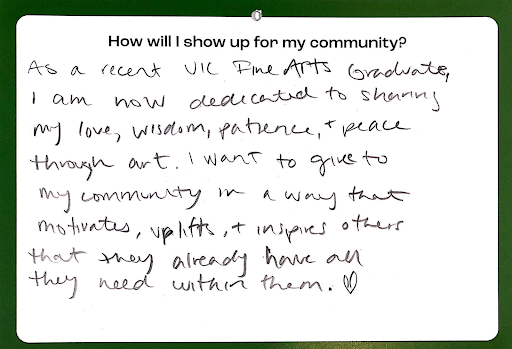 How will I show up for my community?
As a recent UIC Fine Arts Graduate,
I am now dedicated to sharing
my love, wisdom, patience, + peace
through art. I want to give to
my community in a way that
motivates, uplifts, + inspires others
that they already have all
they need within them. ♡